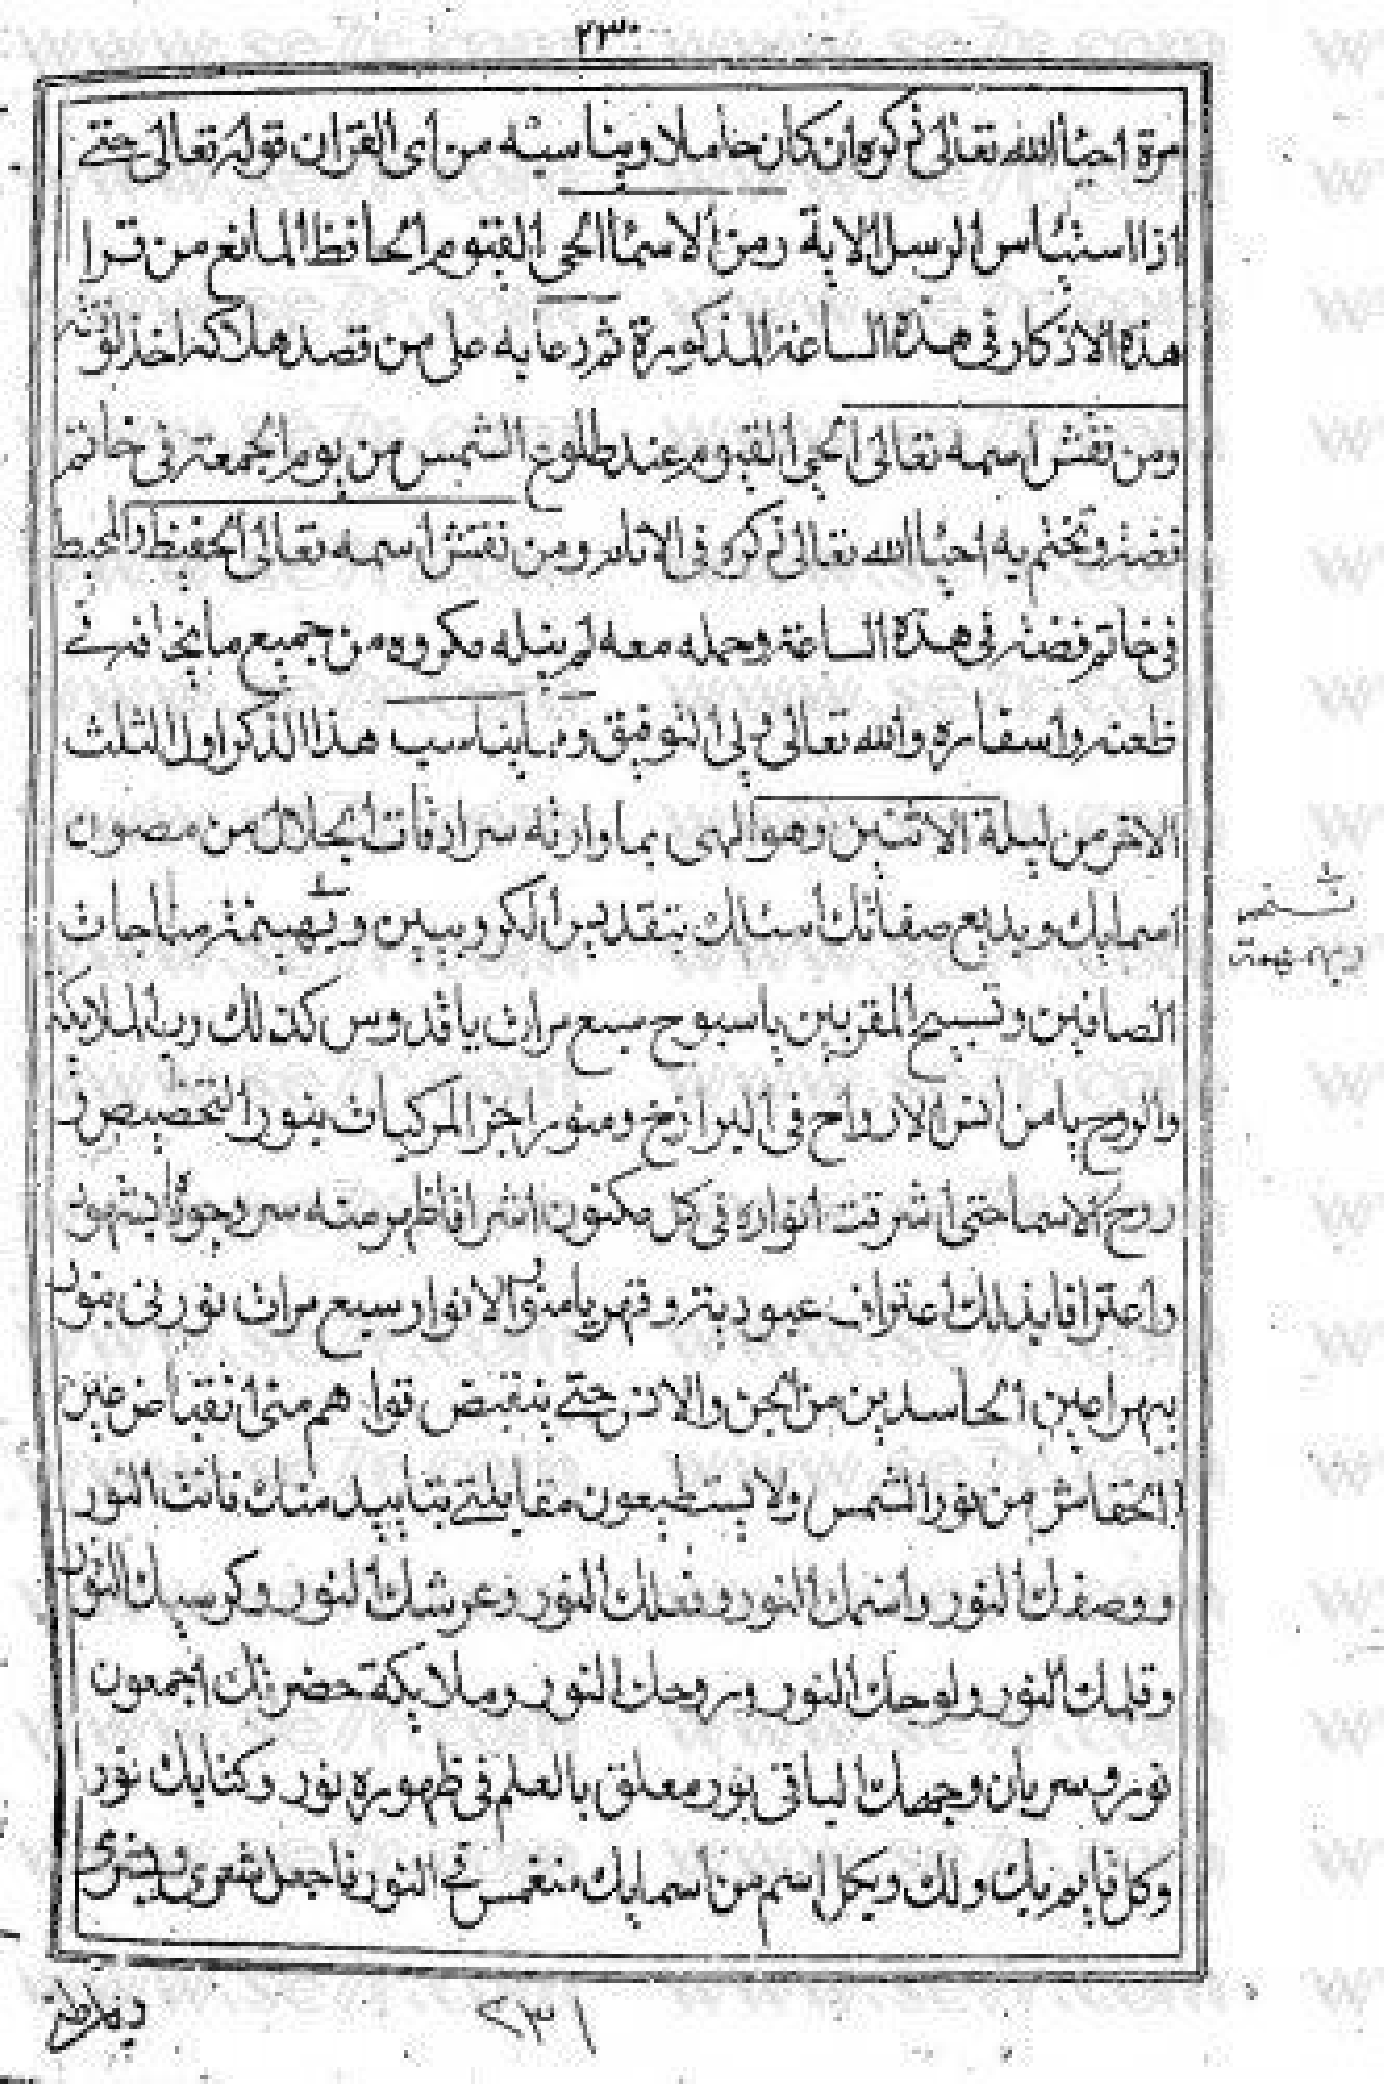 ٢٣٠
مرة احيا الله تعالى ذكره ان كان خاملا ويناسبه من اى القران قوله تعالى حتى
اذا استياس الرسل الاية ومن الاسما الحى القيوم الحافظ المانع من قرا
هذه الاذكار فى هذه الساعة المذكورة ثم دعا به على من قصد هلاكه اخذ لوقته
ومن نقش اسمه تعالى الحى القيوم عند طلوع الشمس من يوم الجمعة فى خاتم
فضة وتختم به احيا الله تعالى ذكره فى الانام ومن نقش اسمه تعالى الحفيظ والمحيط
فى خاتم فضة فى هذه الساعة وحمله معه لم ينله مكروه من جميع ما يخافه فى
ظعنه واسفاره والله تعالى ولى التوفيق ومما يناسب هذا الذكر اول الثلث
الاخر من ليلة الاثنين وهو الهى بما وارته سرادقات الجلال من مصون
اسمايك وبديع صفاتك اسئلك بتقديس الكروبيين وتهينمة مناجات
الصافين وتسبيح المقربين يا سبوح سبع مرات يا قدوس كذلك رب الملايكة
والروح يا من انس الارواح فى البرازخ ومنور اجزا المركبات بنور التخصيص
روح الاسما حتى اشرقت انواره فى كل مكنون اشرافا ظهر منه سر وجود
واعترافا بذلك اعتراف عبودية وقهر يا منور الانوار سبع مرات نورنى بنور
يبهر اعين الحاسدين من الجن والانس حتى ينقبض قواهم منى انقباض عين
الخفاش من نور الشمس ولا يستطيعون مقابلتى بتاييد منك فانت النور
ووصفك النور واسمك النور وفعلك النور وعرشك النور وكرسيك النور
وقلمك النور ولوحك النور وروحك النور وملايكة حضرتك اجمعون
نور وسريان وجهك الباقى نور معلق بالعلم فى ظهوره نور وكتابك نور
وكل قايم بك ولك وبكل اسم من اسمايك منغمس فى النور فاجعل شعرى وبشرى
٢٣١